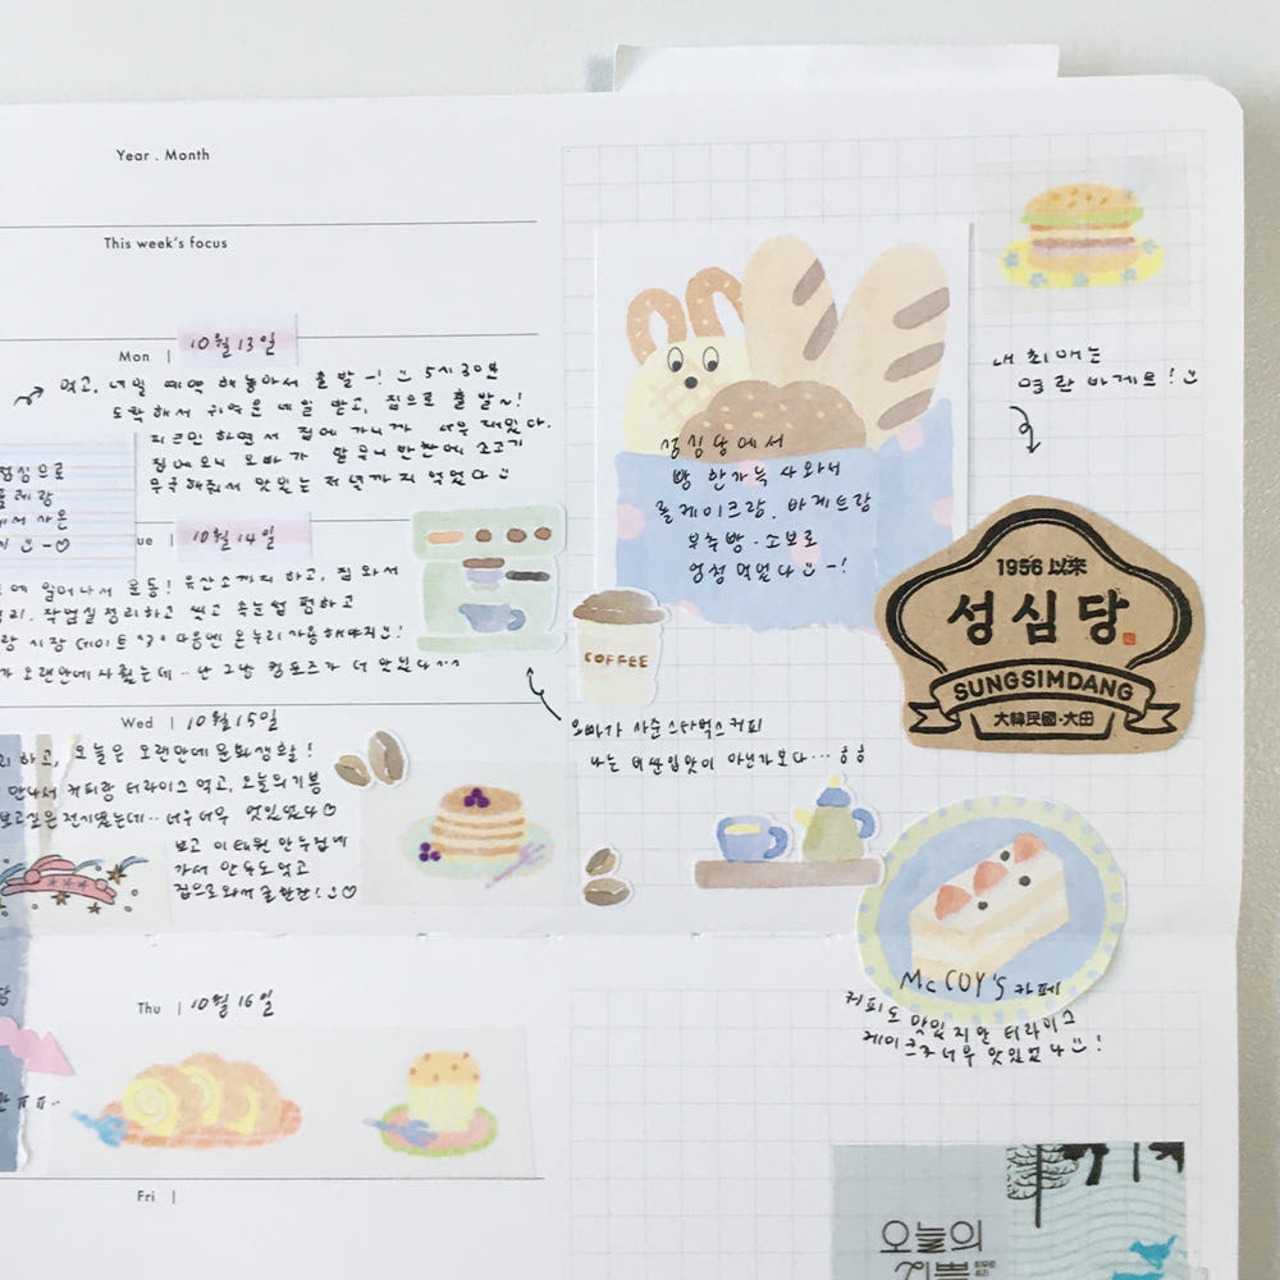 Year . Month
This week's focus
Mon | 10월 13일
먹고, 내일 예약 해놓아서 출발-! 5시 30분
도착해서 귀여운 네일 받고, 집으로 출발~!
피크민 하면서 집에 가니까 너무 재밌다.
집에 오니 오빠가 말무니 만한에 소고기
무국해줘서 맛있는 저녁까지 먹었다
점심으로
에서 사온
ue | 10월 14일
에 일어나서 운동! 유산소까지 하고, 집 와서
작업실 정리하고 씻고 속눈썹 펌하고
랑 시장 데이트 다음엔 온누리 사용해야지!
가 오랜만에 사줬는데.. 난 그냥 컴포즈가 더 맛있다^^
Wed | 10월 15일
하고, 오늘은 오랜만에 문화생활!
만나서 커피랑 티라미스 먹고, 오늘의 기쁨
보고싶은 전시였는데.. 너무너무 멋있었다♡
보고 이태원 안누협네
가서 안주도 먹고
집으로 와서 술 한잔!♡
Thu | 10월 16일
ㅠㅠ..
Fri |
내 최애는
명란바게트!
성심당에서
빵 한가득 사와서
롤케이크랑. 바게트랑
부추빵·소보로
엄청 먹었다-!
1956 以來
성심당
SUNGSIMDANG
大韓民國·大田
COFFEE
오빠가 사준 스타벅스 커피
나는 비싼 입맛이 아닌가보다... ㅎㅎ
McCOY'S 카페
커피도 맛있지만 티라미스
케이크가 너무 맛있었다!
오늘의
기쁨